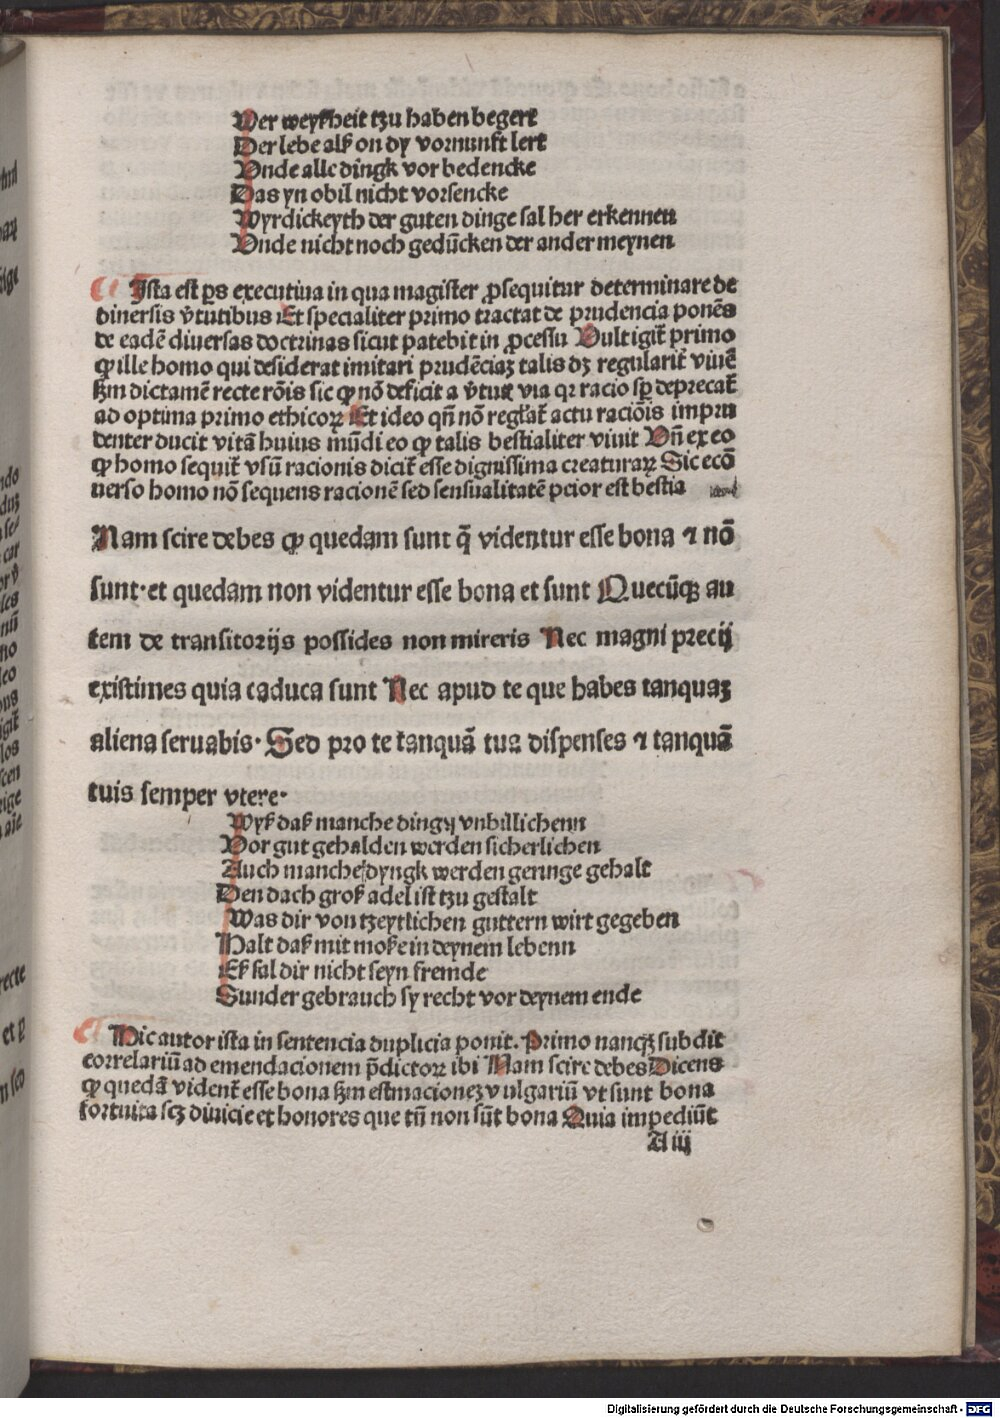 Wer weyßheit tzu haben begert
Der lebe alß on dy vornunft lert
Vnde alle dingk vor bedencke
Das yn obil nicht vorsencke
Wyrdickeyth der guten dinge sal her erkennen
Vnde nicht noch gedūcken der ander meynen
Ista est ꝑs executiua in qua magister ꝓsequitur determinare de
diuersis v̄tutibus Et specialiter primo tractat de prudencia ponēs
de eadē diuersas doctrinas sicut patebit in ꝓcessu Vult igit̄ primo
ꝙ ille homo qui desiderat imitari prudēciaꝫ talis dꝫ regularit̄ viuē
ẜm dictamē recte rōis sic ꝙ nō deficit a v̄tut̄ via qꝛ racio sꝑ deprecat̄
ad optima primo ethicoꝝ Et ideo qn̄ nō regłat̄ actu raciōis impru
denter ducit vitā huius mūdi eo ꝙ talis bestialiter viuit Vn̄ ex eo
ꝙ homo sequit̄ vsū racionis dicit̄ esse dignissima creaturaꝝ Sic ecō
uerso homo nō sequens racionē sed sensualitatē pcior est bestia
Nam scire debes ꝙ quedam sunt q̄ videntur esse bona ⁊ nō
sunt·et quedam non videntur esse bona et sunt Quecūqꝫ au
tem de transitorijs possides non mireris Nec magni precij
existimes quia caduca sunt Nec apud te que habes tanquaꝫ
aliena seruabis· Sed pro te tanquā tua dispenses ⁊ tanquā
tuis semper vtere·
Wyß daß manche dingη vnbillichenn
Vor gut gehalden werden sicherlichen
Auch manche dyngk werden geringe gehalt
Den dach groß adel ist tzu gestalt
Was dir von tzeytlichen guttern wirt gegeben
Halt daß mit moße in deynem lebenn
Eß sal dir nicht seyn fremde
Sunder gebrauch sy recht vor deynem ende
Hic autor ista in sentencia duplicia ponit. Primo nanqꝫ subdit
correlariū ad emendacionem p̄dictoꝝ ibi Nam scire debes Dicens
ꝙ quedā vident̄ esse bona ẜm estmacioneꝫ vulgariū vt sunt bona
fortuita scꝫ diuicie et honores que tn̄ non sūt bona Quia impediūt
A iij
Digitalisierung gefördert durch die Deutsche Forschungsgemeinschaft - DFG